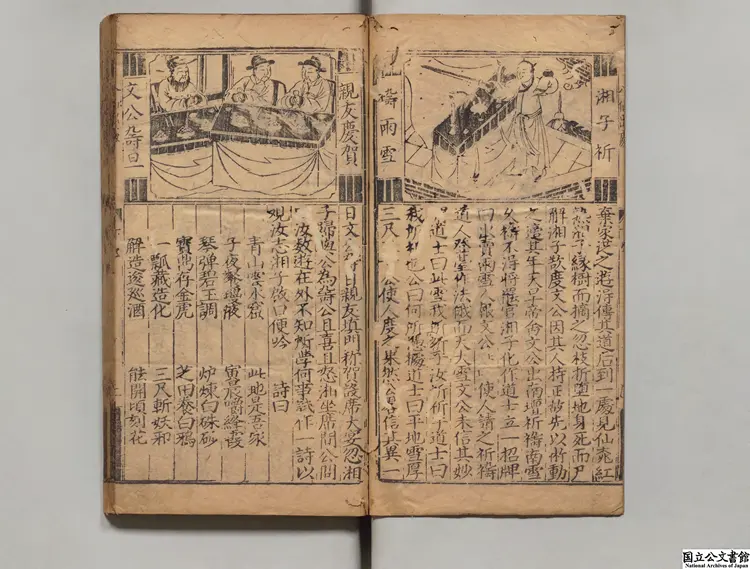 湘子祈
禱雨雪
棄家從之遊得傳其道后到一處見仙桃紅
熟子緣樹而摘之忽枝折墮地身死而尸
解湘子欲度文公因其人持正故先以術動
之適其年天子帝命文公出南壇祈禱雨雪
久禱不得將罷官湘子化作道士立一招牌
曰出賣雨雪報文公使人請之祈禱
道人登壇作法俄而天大雪文公未信其妙
道士曰此雪我所祈乎汝所祈乎道士曰
我所祈也公曰何所憑據道士曰平地雪厚
三尺公使人度之果然信其異一
親友慶賀
文公壽旦
日文公日親友填門称賀設席大宴忽湘
子歸與公為壽公且喜且怒湘坐席間公問
汝遊在外不知所學何事試作一詩以
观汝志湘子啟口便吟 詩曰
青山雲水窟 此地是吾家
子夜飡瓊液 寅晨嚼絳霞
琴彈碧玉調 炉煉白硃砂
寶鼎存金虎 芝田養白鴉
一瓢藏造化 三尺斬妖邪
解造逡巡酒 能開頃刻花
国立公文書館
National Archives of Japan